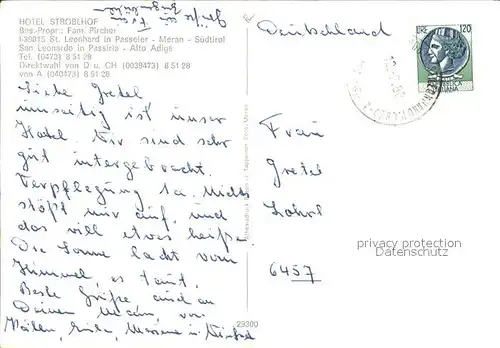 Grüße an Frau
HOTEL STROBLHOF
Bes.-Propr.: Fam. Pircher
I-39015 St. Leonhard in Passeier - Meran - Südtirol
San Leonardo in Passiria - Alto Adige
Tel. (0473) 8 51 28
Direktwahl von D u. CH (0039473) 8 51 28
von A (040473) 8 51 28
Liebe Gretel
umseitig ist unser
Hotel. Wir sind sehr
gut untergebracht.
Verpflegung 1a. Nichts
stößt mir auf, und
das will etwas heißen
Die Sonne lacht vom
Himmel, es taut.
Beste Grüße auch an
Deinen Mann, von
29300
Deutschland
LIRE 120
ITALIANA
Frau
Gretel
6457
privacy protection
Datenschutz